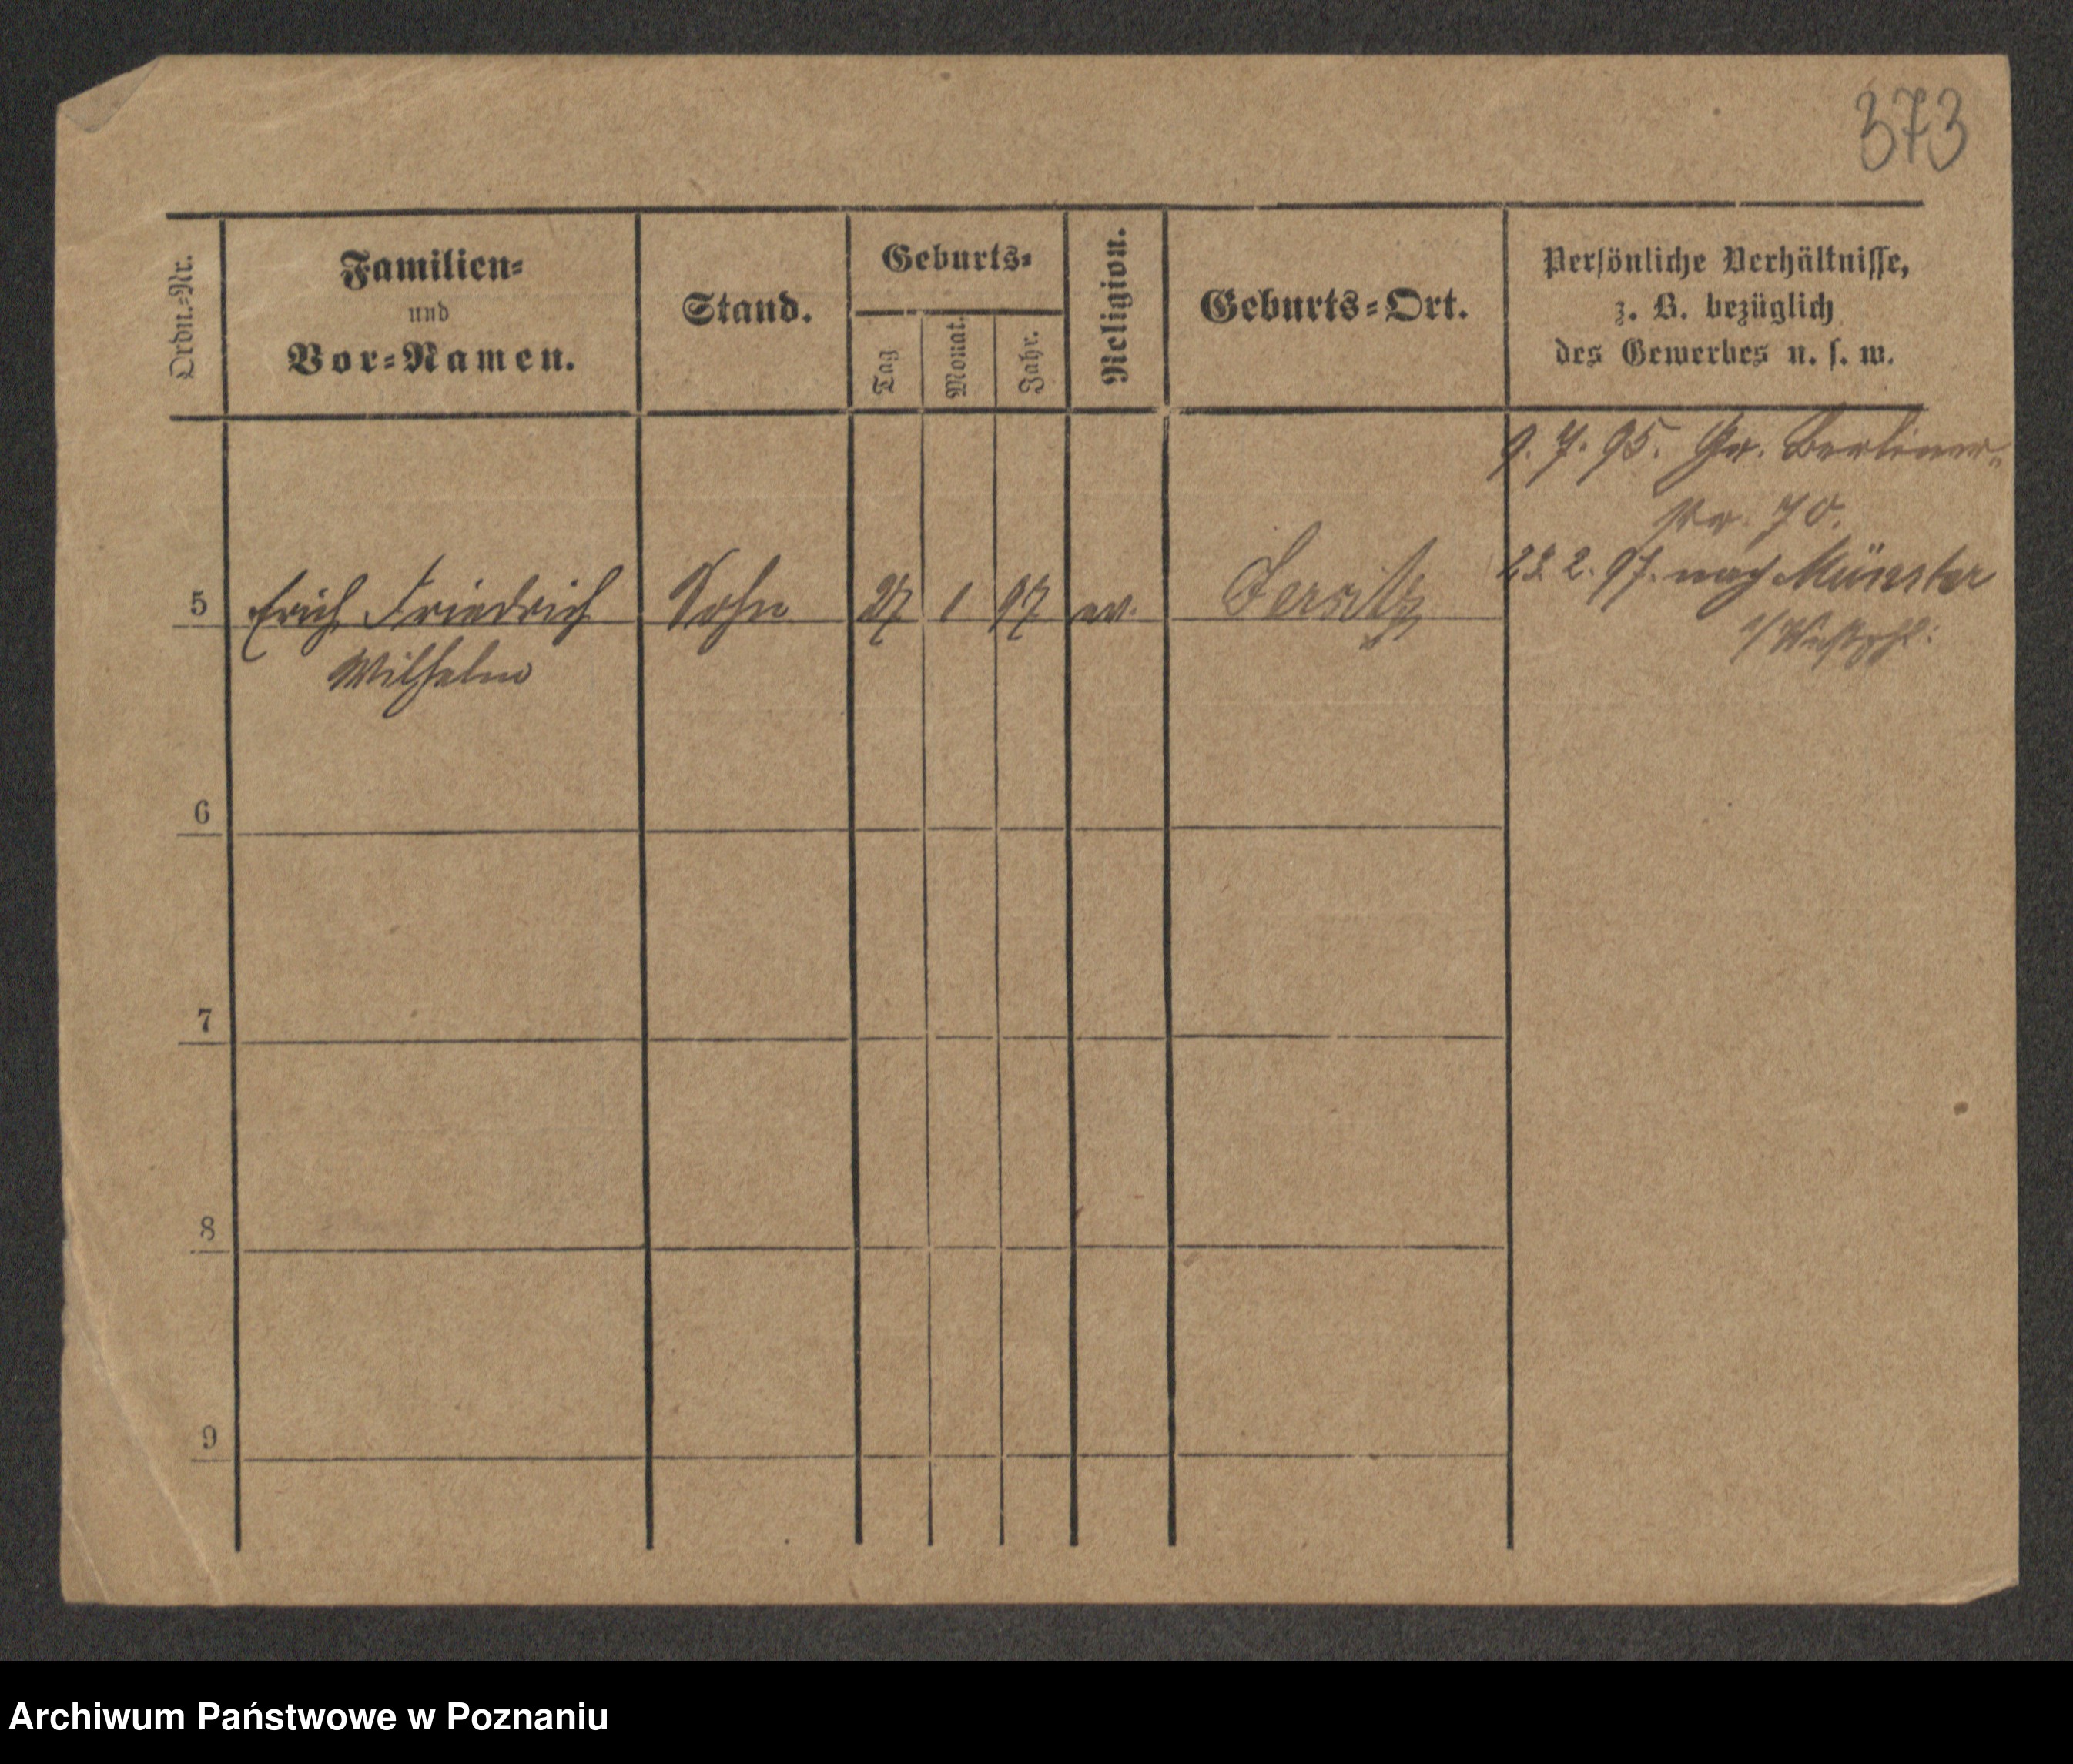 373
Ordn.-Nr.
Familien-
und
Vor-Namen.
Stand.
Geburts-
Tag
Monat.
Jahr.
Religion.
Geburts-Ort.
Persönliche Verhältnisse,
z. B. bezüglich
des Gewerbes u. s. w.
9. 7. 95. Gr. Berliner-
str. 70.
23. 2. 97. nach Münster
i/Westphl.
5 Erich Friedrich Sohn 27 1 97 ev. Jersitz
Wilhelm
6
7
8
9
Archiwum Państwowe w Poznaniu